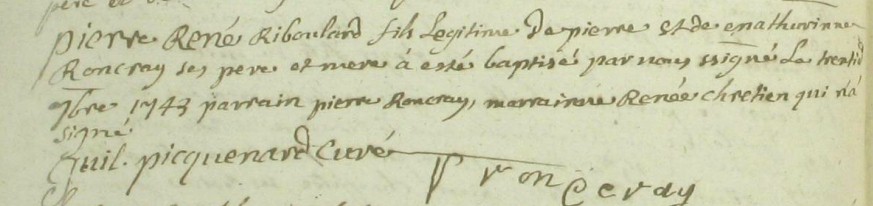 pierre René Riboulard fils Legitime De pierre et de Mathurinne
Roncray ses pere et mere à esté baptisé par nous ssigné Le trente
9bre 1743 parrain pierre Roncray, marraine Renée chretien qui n'a
signé
Guil. picquenard Curé
P ronceray